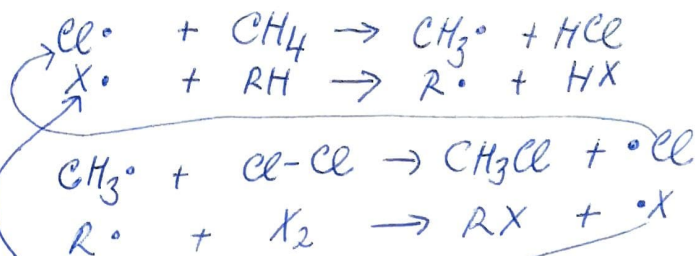 Cl• + CH₄ → CH₃• + HCl
X• + RH → R• + HX
CH₃• + Cl-Cl → CH₃Cl + •Cl
R• + X₂ → RX + •X